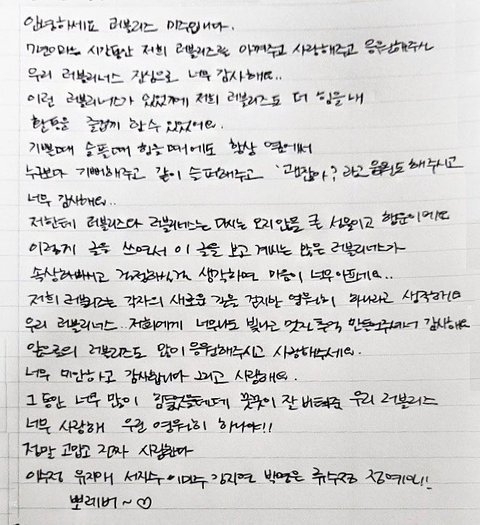 안녕하세요 러블리즈 미주입니다.
7년이라는 시간동안 저희 러블리즈를 아껴주고 사랑해주고 응원해주신
우리 러블리너스 진심으로 너무 감사해요..
이런 러블리너스가 있었기에 저희 러블리즈도 더 힘을 내
활동을 즐겁게 할 수 있었어요.
기쁠때 슬플때 힘들 때에도 항상 옆에서
누구보다 기뻐해주고 같이 슬퍼해주고 '괜찮아? 라고 응원도 해주시고
너무 감사해요..
저한테 러블리즈와 러블리너스는 다시는 오지않을 큰 선물이고 행운이에요
이렇게 글을 쓰면서 이 글을 보고 계시는 많은 러블리너스가
속상해하시고 걱정하실걸 생각하면 마음이 너무 아프네요..
저희 러블리즈는 각자의 새로운 길을 걷지만 영원히 하나라고 생각해요
우리 러블리너스.. 저희에게 너무나도 빛나고 멋진 추억 만들어주셔서 감사해요
앞으로의 러블리즈도 많이 응원해주시고 사랑해주세요.
너무 미안하고 감사합니다 그리고 사랑해요.
그동안 너무 많이 힘들었을텐데 꿋꿋이 잘 버텨준 우리 러블리즈
너무 사랑해 우린 영원히 하나야!!
정말 고맙고 진짜 사랑한다
이수정 유지애 서지수 이미주 김지연 박명은 류수정 정예인!!
뽀레버~♡